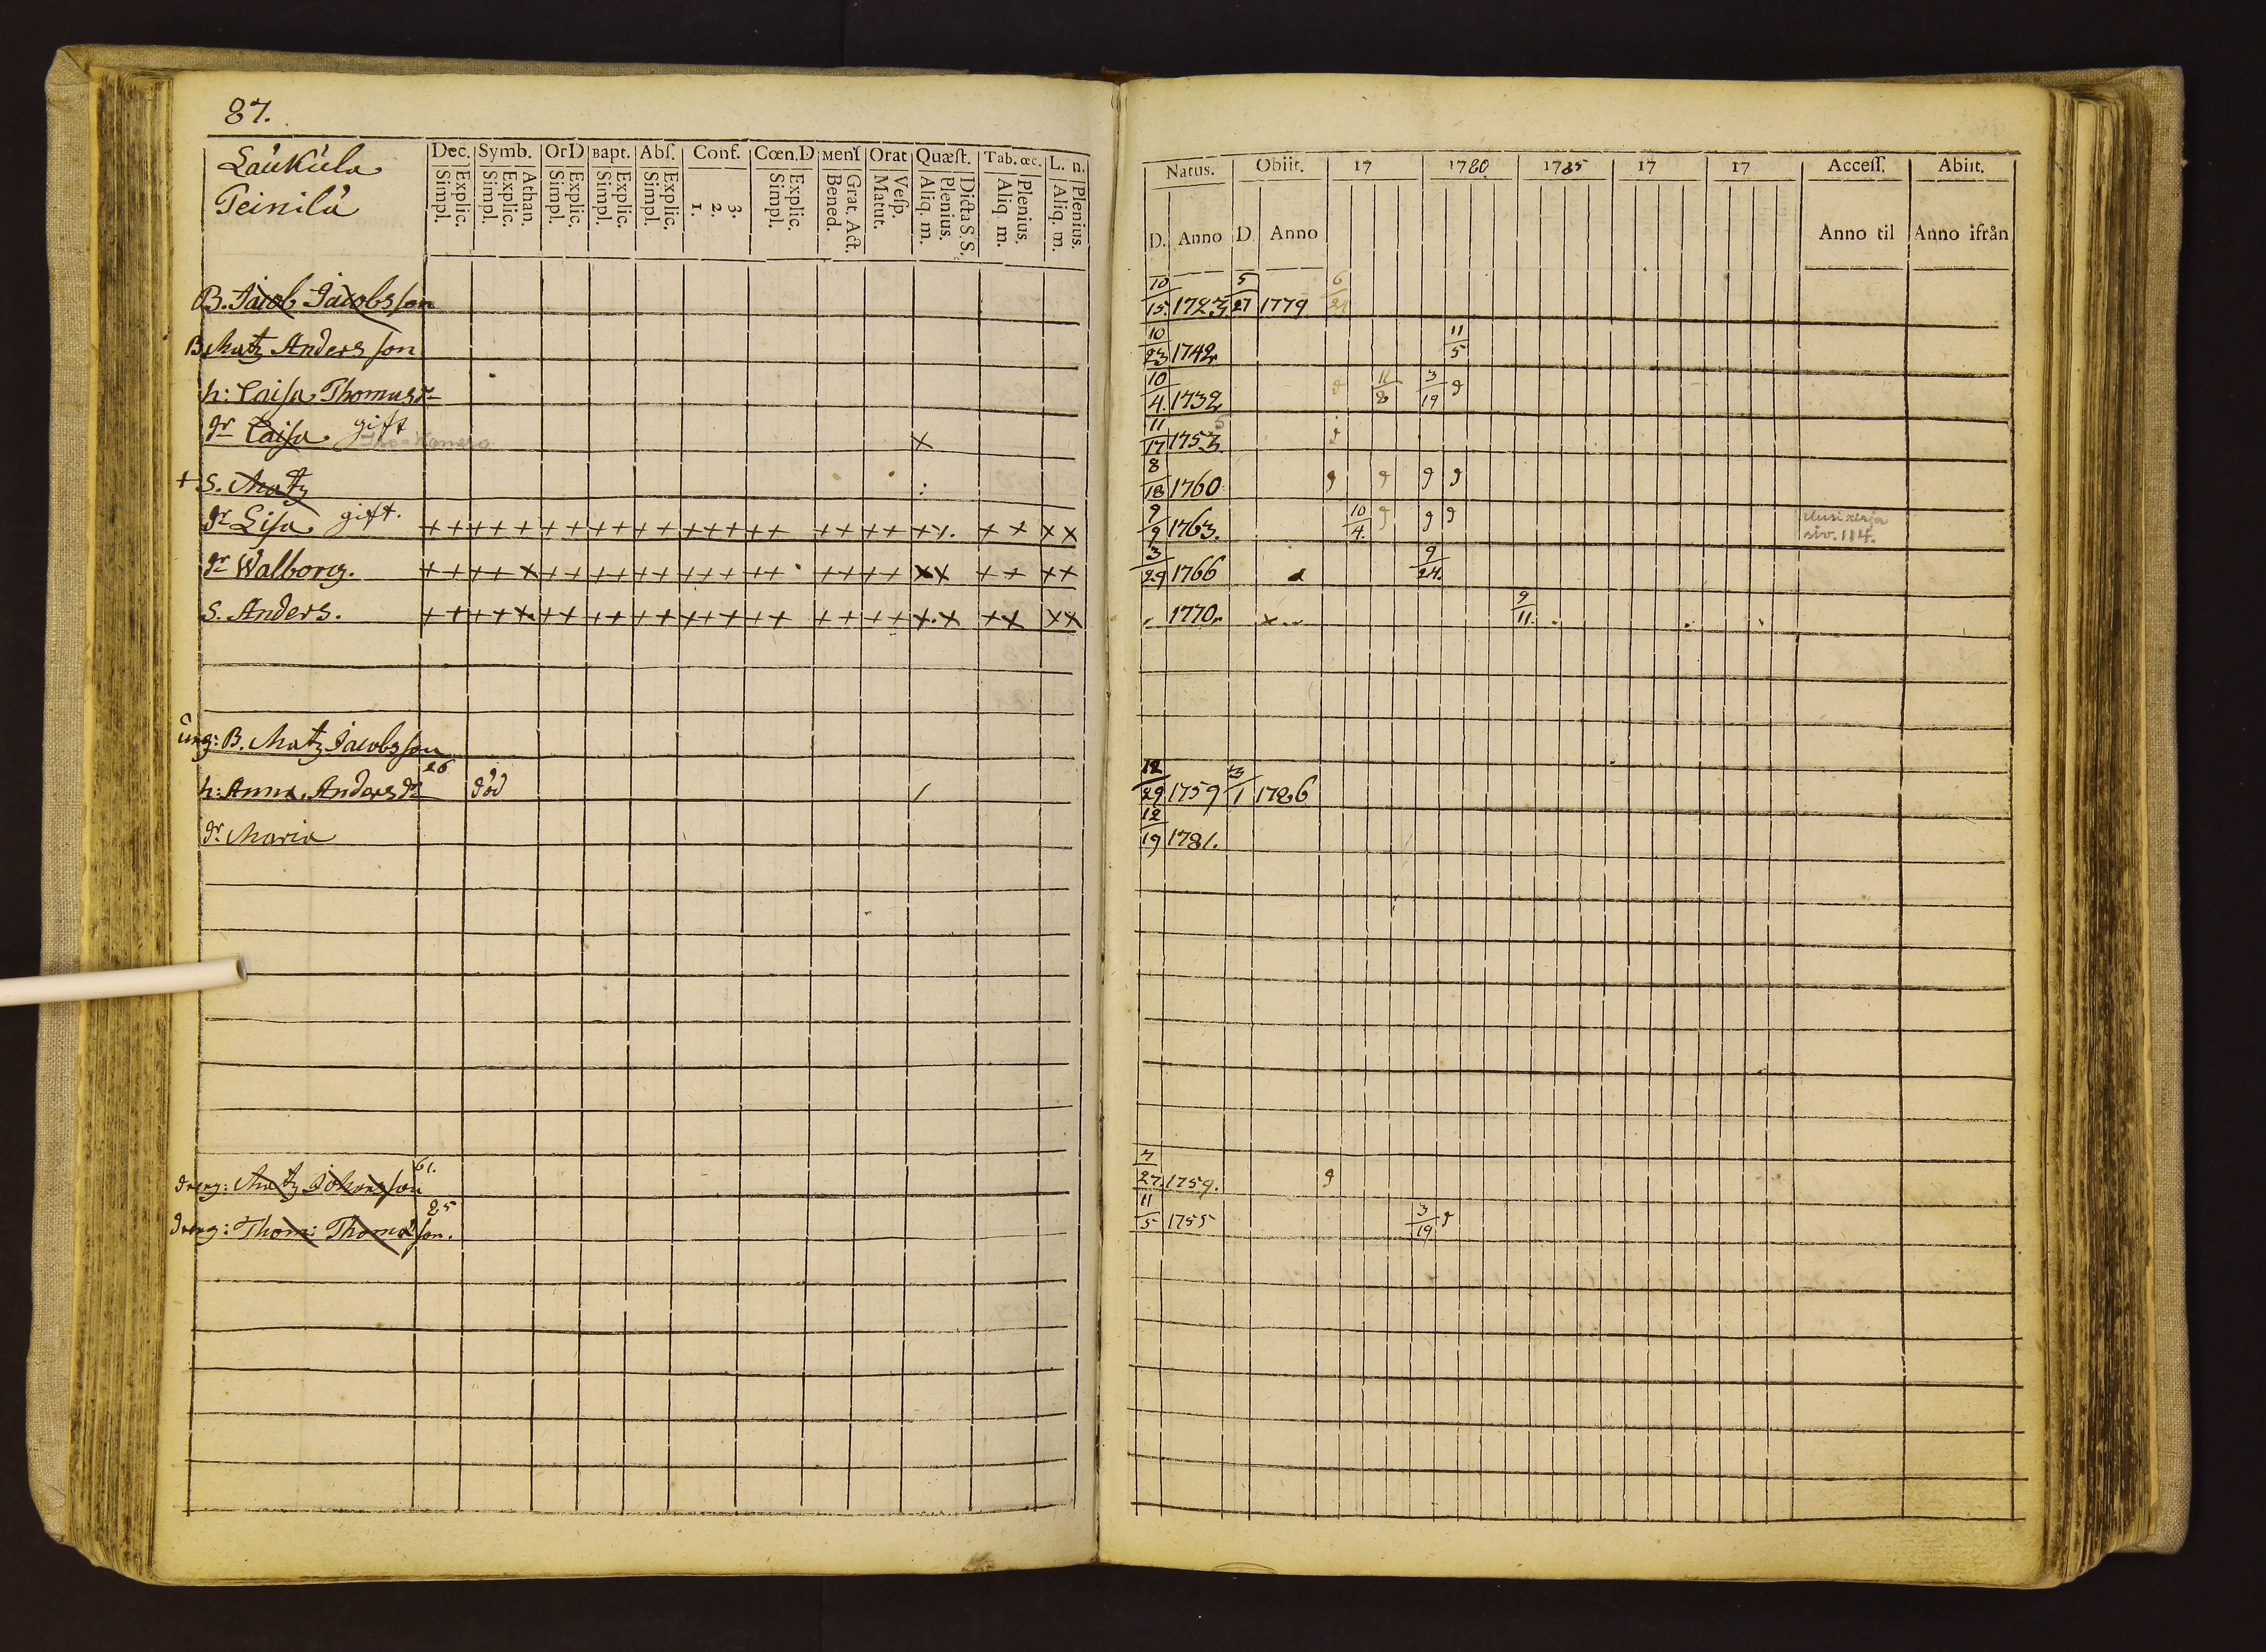 87.
Laukula
Peinilä
Dec. Symb. OrD Bapt. Abſ. Conf. Cœn.D Menſ Orat Quæſt. Tab. œc. L. n.
Explic. Simpl. Athan. Explic. Simpl. Explic. Simpl. Explic. Simpl. Explic. Simpl. 3. 2. 1. Explic. Simpl. Grat. Act. Bened. Veſp. Matut. Dicta S.S. Plenius. Aliq. m. Plenius. Aliq. m. Plenius. Aliq. m.
B. Jacob Jacobsson
B. Matz Andersson
h: Caisa Thomasdr
dr Caisa gift
+ S. Matz
dr Lisa gift. + + + + + + + + + + + + + + + + + + + + + + + x x
dr Walborg. + + + + x + + + + + + + + + + + + + + + x x + + + +
S. Anders. + + + + x + + + + + + + + + + + + + + + x. x + x x x
ung: B. Matz Jacobsson
h: Anna Andersdr 26 död
dr. Maria
dreng: Matz Johansson 61.
dreng: Thom: Thomasson. 25
Natus. Obiit. 17 1780 1785 17 17 Acceſſ. Abiit.
D. Anno D. Anno Anno til Anno ifrån
10/15. 1723 5/27 1779 6/24
10/23 1742 11/5
10/4. 1732 11/8 3/19
11/17 1753
8/18 1760
9/9 1763. 10/4.
siv. 114.
3/29 1766 9/24.
1770. 9/11.
12/29 1759 3/1 1786
12/19 1781.
7/27. 1759.
11/5 1755 3/19